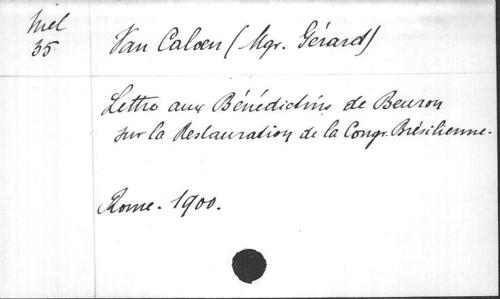 Mel
35
Van Caloen (Mgr. Gérard)
Lettre aux Bénédictins de Beuron
sur la Restauration de la Congr. Brésilienne.
Rome. 1900.